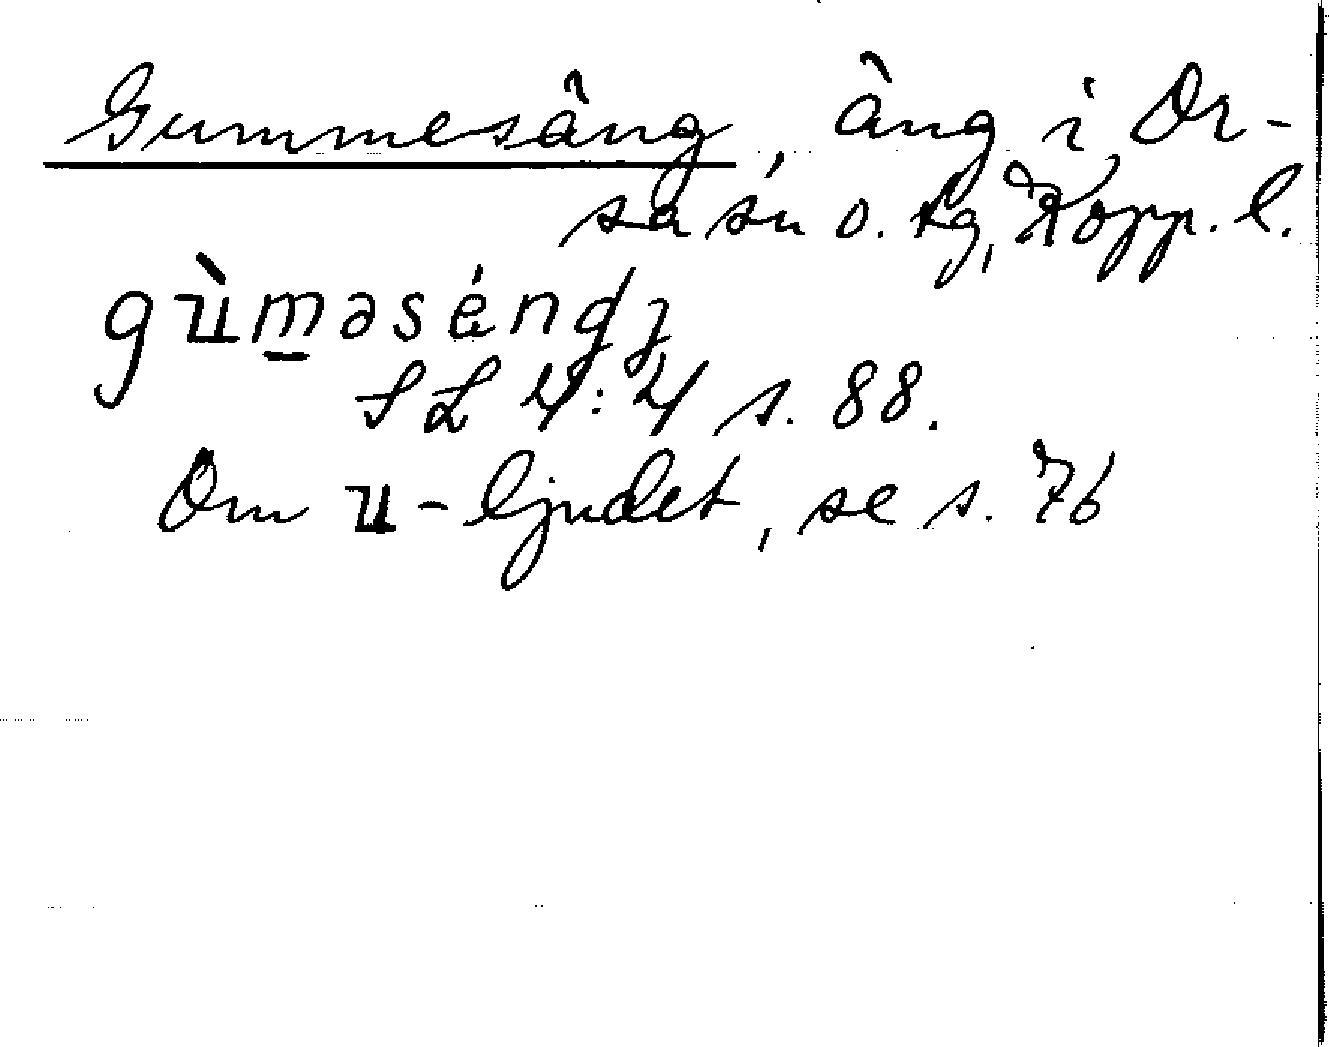 Gummesäng, äng i Or-
sa sn o. tg, Kopp. l.
gùm̲əséndʒ
SL 4:4 s. 88.
Om u-ljudet, se s. 76